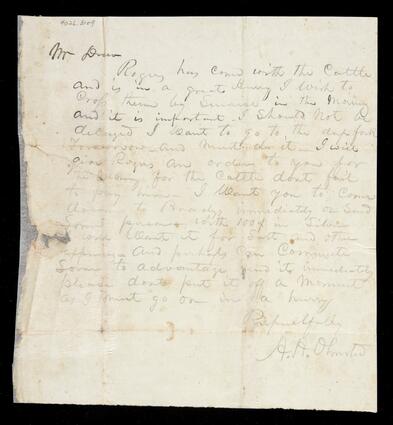 4026.8109
Mr Drew
Rogers has come with the Cattle
and is in a great Hurry I wish to
Cross them by Sunrise in the Morning
and it is important I Should Not be
delayed I want to go to the deep fork
Tomorrow and Must do it I will
give Rogers an order to you for
the Money for the Cattle dont fail
to pay him I Want you to Come
down to immediately or Send
Some person with 100$ in Silver
I Want it for cost and other
expenses And perhaps Can Commute
Some to advantage Send it immediately
please dont put it off a Moment
as I must go on in a hurry
Respectfully
A. H. Olmsted